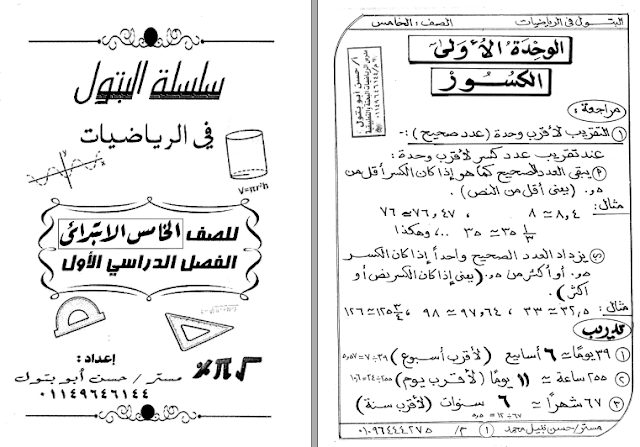 سلسلة البتول
في الرياضيات
y
x
V=πr²h
للصف الخامس الابتدائى
الفصل الدراسي الأول
√ π ٪
إعداد:
مستر/ حسن أبو بتول
٠١١٤٩٦٤٦١٤٤
البتول فى الرياضيات
الصف: الخامس
الوحدة الأولى
الكسور
أ/ حسن أبو بتول
مراجعة:
١ التقريب لأقرب وحدة (عدد صحيح):-
عند تقريب عدد كسر لأقرب وحدة:
يبقى العدد الصحيح كما هو إذا كان الكسر أقل من
٠,٥ (يعنى أقل من النص).
مثال: ٨,٤ ≃ ٨ ، ٧٦,٤٧ ≃ ٧٦
٣٥ ١/٣ ≃ ٣٥ ... وهكذا
يزداد العدد الصحيح واحداً إذا كان الكسر
٠,٥ أو أكثر من ٠,٥ (يعنى إذا كان الكسر نص أو
أكثر).
مثال: ٣٢,٥ ≃ ٣٣ ، ٩٧,٦٤ ≃ ٩٨ ، ١٢٥ ٣/٤ ≃ ١٢٦
تدريب
١ ٣٩ يومًا ≃ ٦ أسابيع (لأقرب أسبوع) ٣٩÷٧=٥,٥٧
٢ ٢٥٥ ساعة ≃ ١١ يومًا (لأقرب يوم) ٢٥٥÷٢٤=١٠,٦
٣ ٦٧ شهراً ≃ ٦ سنوات (لأقرب سنة)
٦٧÷١٢=٥,٥
مستر/ حسن نبيل محمد ١ م/ ٠١٠٩٦٤٤٤٢٧٥